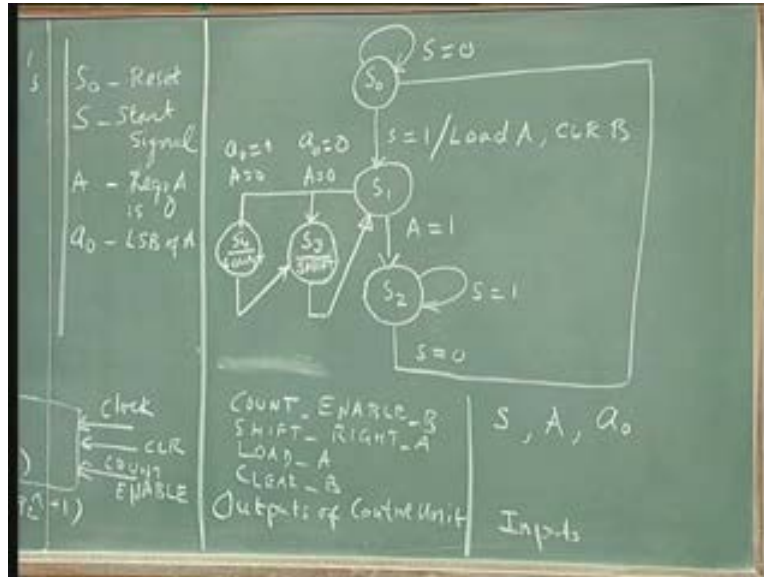 S0 - Reset
S - Start
Signal
A - Reg. A
is 0
a0 - LSB of A
S=0
S0
S=1/Load A, CLR B
a0=1 a0=0
A=0 A=0
S1
A=1
S4
S3
SHIFT
S2
S=1
S=0
Clock
CLR
COUNT
ENABLE
COUNT_ENABLE_B
SHIFT_RIGHT_A
LOAD_A
CLEAR_B
Outputs of Control Unit
S, A, a0
Inputs